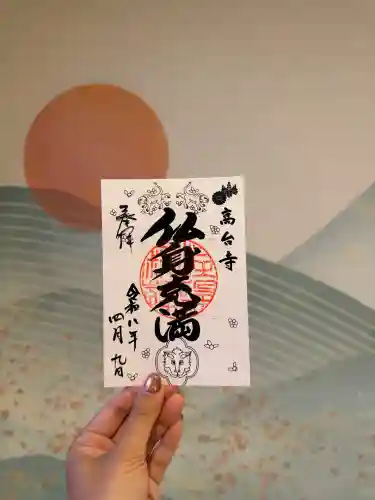 高台寺
仏身充満
奉拝
令和八年
四月九日